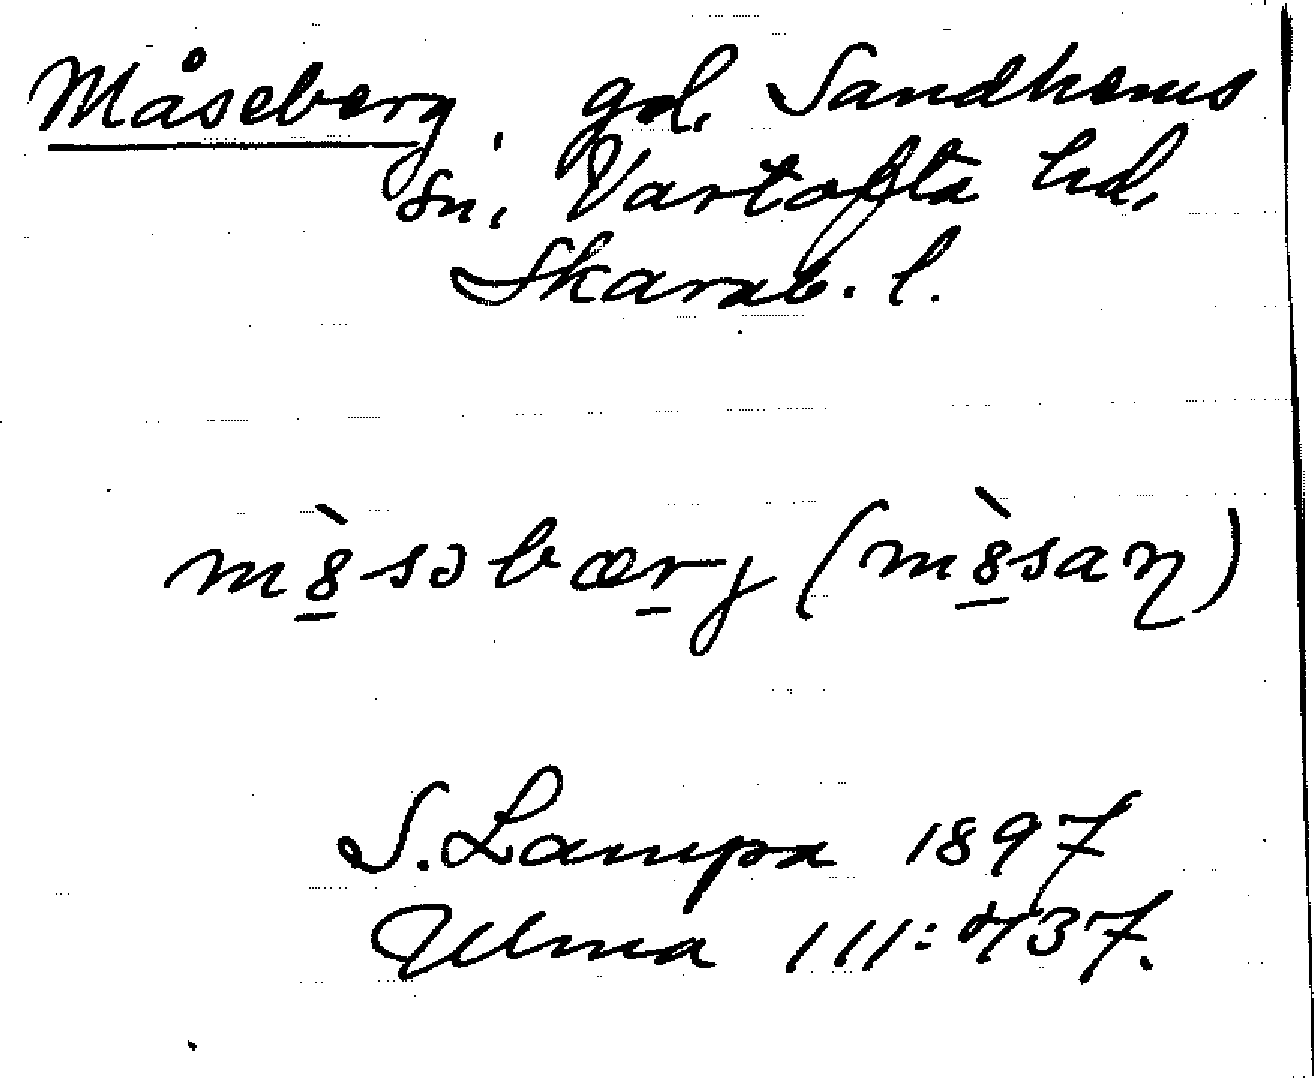 Måseberg, gd, Sandhems
sn, Vartofta hd,
Skarab. l.
mo̠̍̀8̠̀səbær̠j (m8̠̀saŋ)
S. Lampa 1897
Ulma 111:737.